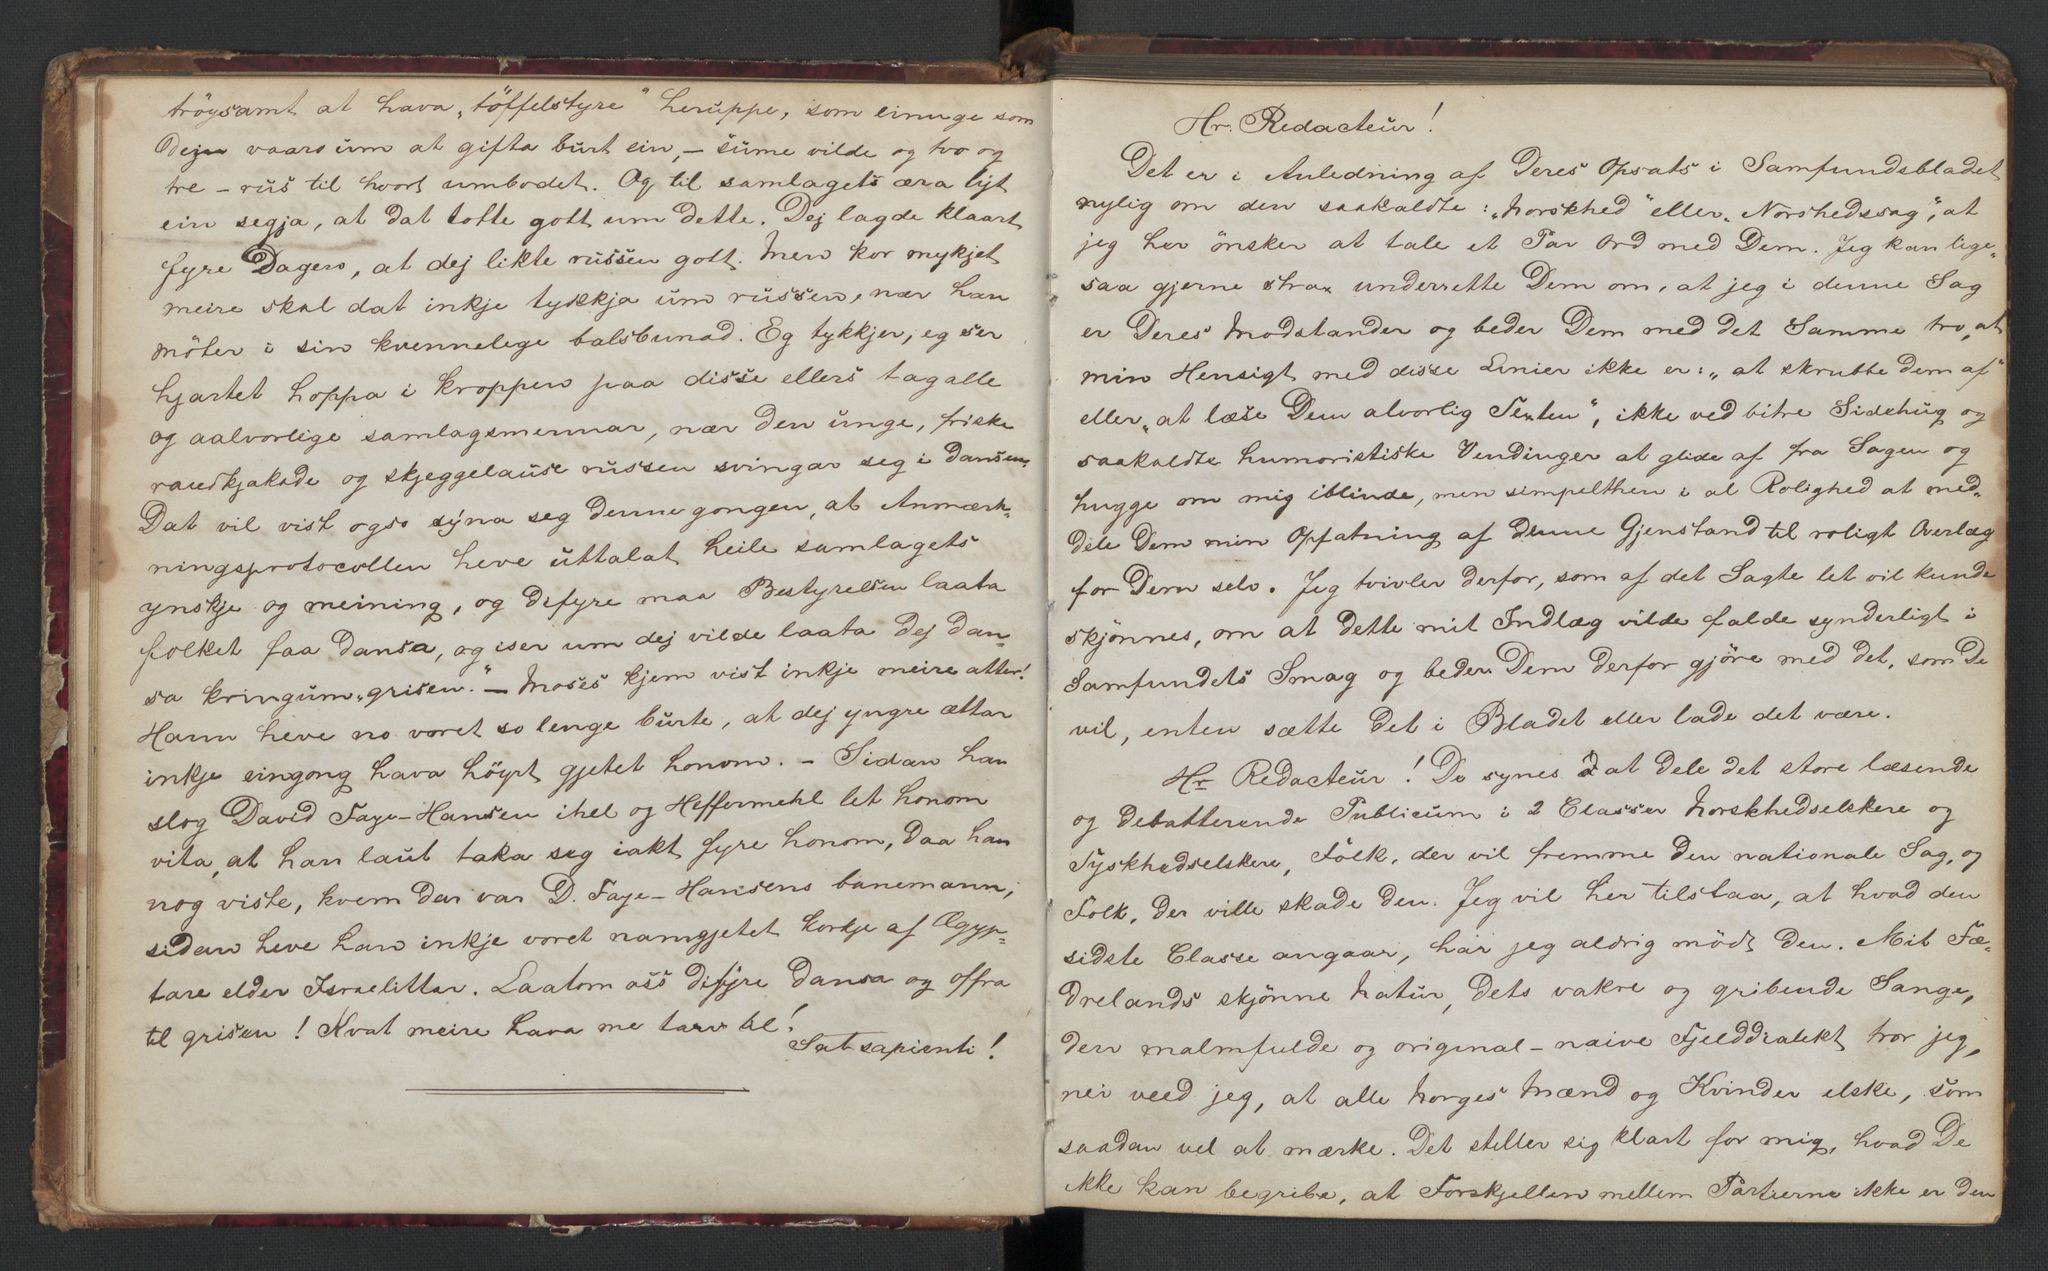 tröysamt at hava „töffelstyre" heruppe, som einuge som
Dej vaare um at gifta burt ein, — sume vilde og tvo og
tre — rus til hvort umbodet. Og til samlagets æra lyt
ein segja, at dat totte gott um dette. Dej lagde klaart
fyre Dagen, at dej likte russen gott. Men kor mykjet
meire skal dat inkje tykkja um russen, nær han
möter i sin kvennelege balsbunad. Eg tykkjer, eg ser
hjartet hoppa i kroppen paa disse ellers tagalle
og aalvorlige samlagsmennar, nær den unge, friske
raudkjakade og skjeggelause russen svingar seg i dansen.
Dat vil vist ogso syna seg denne gongen, at Anmærk-
ningsprotocollen heve uttalat heile samlagets
ynskje og meining, og difyre maa Bestyrelsen laata
folket faa dansa, og iser um dej vilde laata dej dan-
sa kringum „grisen." — Moses kjem vist inkje meire atter!
Hann heve no voret so lenge burte, at dej yngre ættar
inkje eingong hava höyrt gjetet honom. — Sidan han
slog David Faye-Hansen ihel og Heffermehl let honom
vita, at han laut taka seg iakt fyre honom, daa han
nog viste, kvem der var D. Faye-Hansens banemann,
sidan heve han inkje voret namngjetet korkje af Ægyp-
tare elder Israelittar. Laatom oss difyre dansa og offra
til grisen! Kvat meire hava me tarv til!
Sat sapienti!
Hr. Redacteur!
Det er i Anledning af Deres Opsats i Samfundsbladet
nylig om den saakaldte: „Norskhed" eller „Norshedssag", at
jeg her önsker at tale et Par Ord med Dem. Jeg kan lige-
saa gjerne strax underrette Dem om, at jeg i denne Sag
er Deres Modstander og beder Dem med det Samme tro, at
min Hensigt med disse Linier ikke er: „at skrubbe Dem af"
eller „at læse Dem alvorlig Texten", ikke ved bitre Sidehug og
saakaldte humoristiske Vendinger at glide af fra Sagen og
hugge om mig iblinde, men simpelthen i al Rolighed at med-
dele Dem min Opfatning af denne Gjenstand til roligt Overlæg
for Dem selv. Jeg tvivler derfor, som af det Sagte let vil kunde
skjönnes, om at dette mit Indlæg vilde falde synderligt i
Samfundets Smag og beder Dem derfor gjöre med det, som De
vil, enten sætte det i Bladet eller lade det være.
Hr. Redacteur! De synes at dele det store læsende
og debatterende Publicum i 2 Classer Norskhedselskere og
Tyskhedselskere, Folk, der vil fremme den nationale Sag, og
Folk, der ville skade den. Jeg vil her tilstaa, at hvad den
sidste Classe angaar, har jeg aldrig mödt den. Mit Fæ-
drelands skjönne Natur, dets vakre og gribende Sange,
den malmfulde og original-naive Fjelddialekt tror jeg,
nei veed jeg, at alle Norges Mænd og Kvinder elske, som
saadan vel at mærke. Det stiller sig klart for mig, hvad De
ikke kan begribe, at Forskjellen mellem Partierne ikke er den